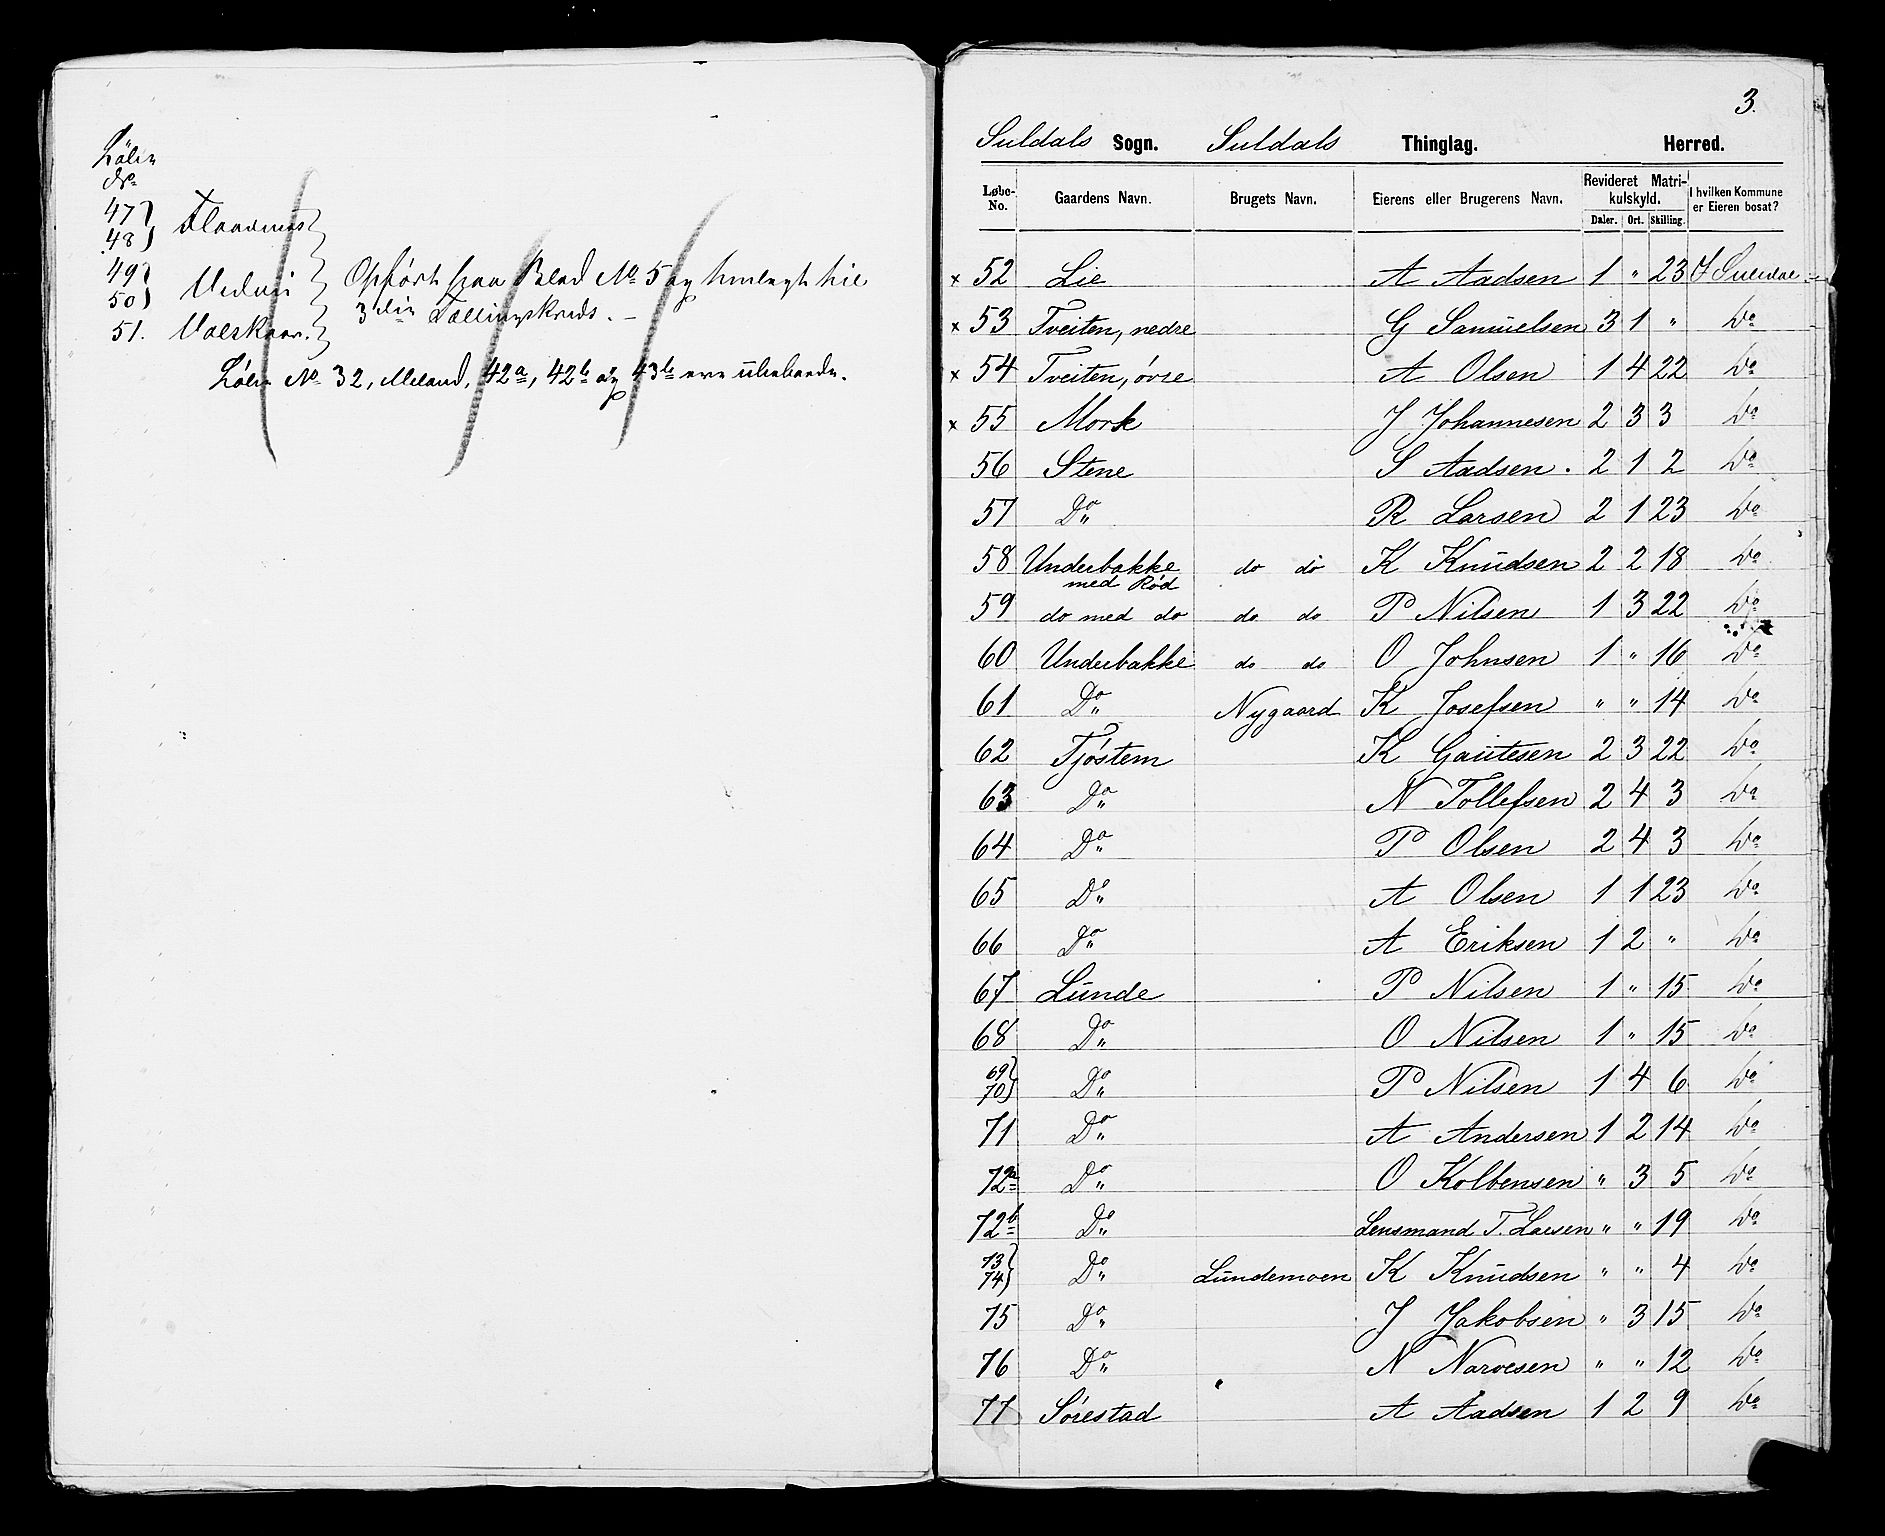 Løbe
No
47
48 } Flaarnes
49
50 } Vedvii
51. Valskaar.
Opført paa Blad No 5 og henlagt til
3die Tællingskreds. –
Løbe No 32, Meland, 42a, 42b og 43b ere ubeboede.
3.
Suldals Sogn. Suldals Thinglag. Herred.
Løbe-No. Gaardens Navn. Brugets Navn. Eierens eller Brugerens Navn. Revideret Matrikulskyld. Daler. Ort. Skilling. I hvilken Kommune er Eieren bosat?
x 52 Lie A Aadsen 1 " 23 I Suledal
x 53 Tveiten, nedre G Samuelsen 3 1 " Do
x 54 Tveiten, øvre A Olsen 1 4 22 Do
x 55 Mork J Johannesen 2 3 3 Do
56 Stene S Aadsen. 2 1 2 Do
57 Do R Larsen 2 1 23 Do
58 Underbakke med Rød do do K Knudsen 2 2 18 Do
59 do med do do do P Nilsen 1 3 22 Do
60 Underbakke do do O Johnsen 1 " 16 Do
61 Do Nygaard K Josefsen " " 14 Do
62 Tjøstem K Gautesen 2 3 22 Do
63 Do N Tollefsen 2 4 3 Do
64 Do P Olsen 2 4 3 Do
65 Do A Olsen 1 1 23 Do
66 Do A Eriksen 1 2 " Do
67 Lunde P Nilsen 1 " 15 Do
68 Do O Nilsen 1 " 15 Do
69 70 } Do P Nilsen 1 4 6 Do
71 Do A Andersen 1 2 14 Do
72a Do O Kolbensen " 3 5 Do
72b Do Lensmand T. Larsen " " 19 Do
73 74 } Do Lundemoen K Knudsen " " 4 Do
75 Do J Jakobsen " 3 15 Do
76 Do N Narvesen " " 12 Do
77 Sørestad A Aadsen 1 2 9 Do